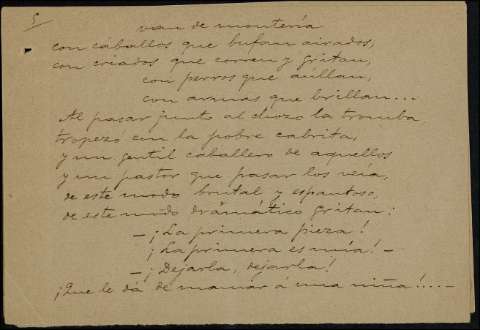 5
van de montería
con caballos que bufan airados,
con criados que corren y gritan,
con perros que aúllan,
con armas que brillan...
Al pasar junto al chozo la tromba
tropezó con la pobre cabrita,
y un gentil caballero de aquellos
y un pastor que pasar los veía,
de este modo brutal y espantoso,
de este modo dramático gritan:
—¡La primera pieza!
¡La primera es mía!—
—¡Dejarla, dejarla!
¡Que le da de mamar á una niña!....—